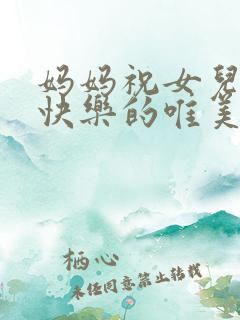 妈妈祝女兒
快樂的唯美
栖心
未经同意禁止转载